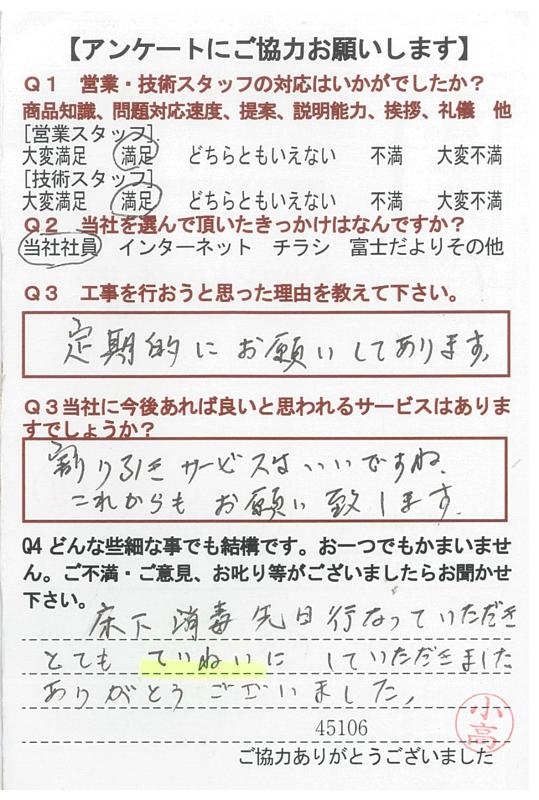 【アンケートにご協力お願いします】
Q1 営業・技術スタッフの対応はいかがでしたか?
商品知識、問題対応速度、提案、説明能力、挨拶、礼儀 他
[営業スタッフ]
大変満足 満足 どちらともいえない 不満 大変不満
[技術スタッフ]
大変満足 満足 どちらともいえない 不満 大変不満
Q2 当社を選んで頂いたきっかけはなんですか?
当社社員 インターネット チラシ 富士だよりその他
Q3 工事を行おうと思った理由を教えて下さい。
定期的にお願いしてあります。
Q3当社に今後あれば良いと思われるサービスはありま
すでしょうか?
割り引きサービスはいいですね。
これからもお願い致します。
Q4 どんな些細な事でも結構です。お一つでもかまいませ
ん。ご不満・ご意見、お叱り等がございましたらお聞かせ
下さい。
床下消毒先日行なっていただき
とてもていねいにしていただきました
ありがとうございました。
45106
小高
ご協力ありがとうございました